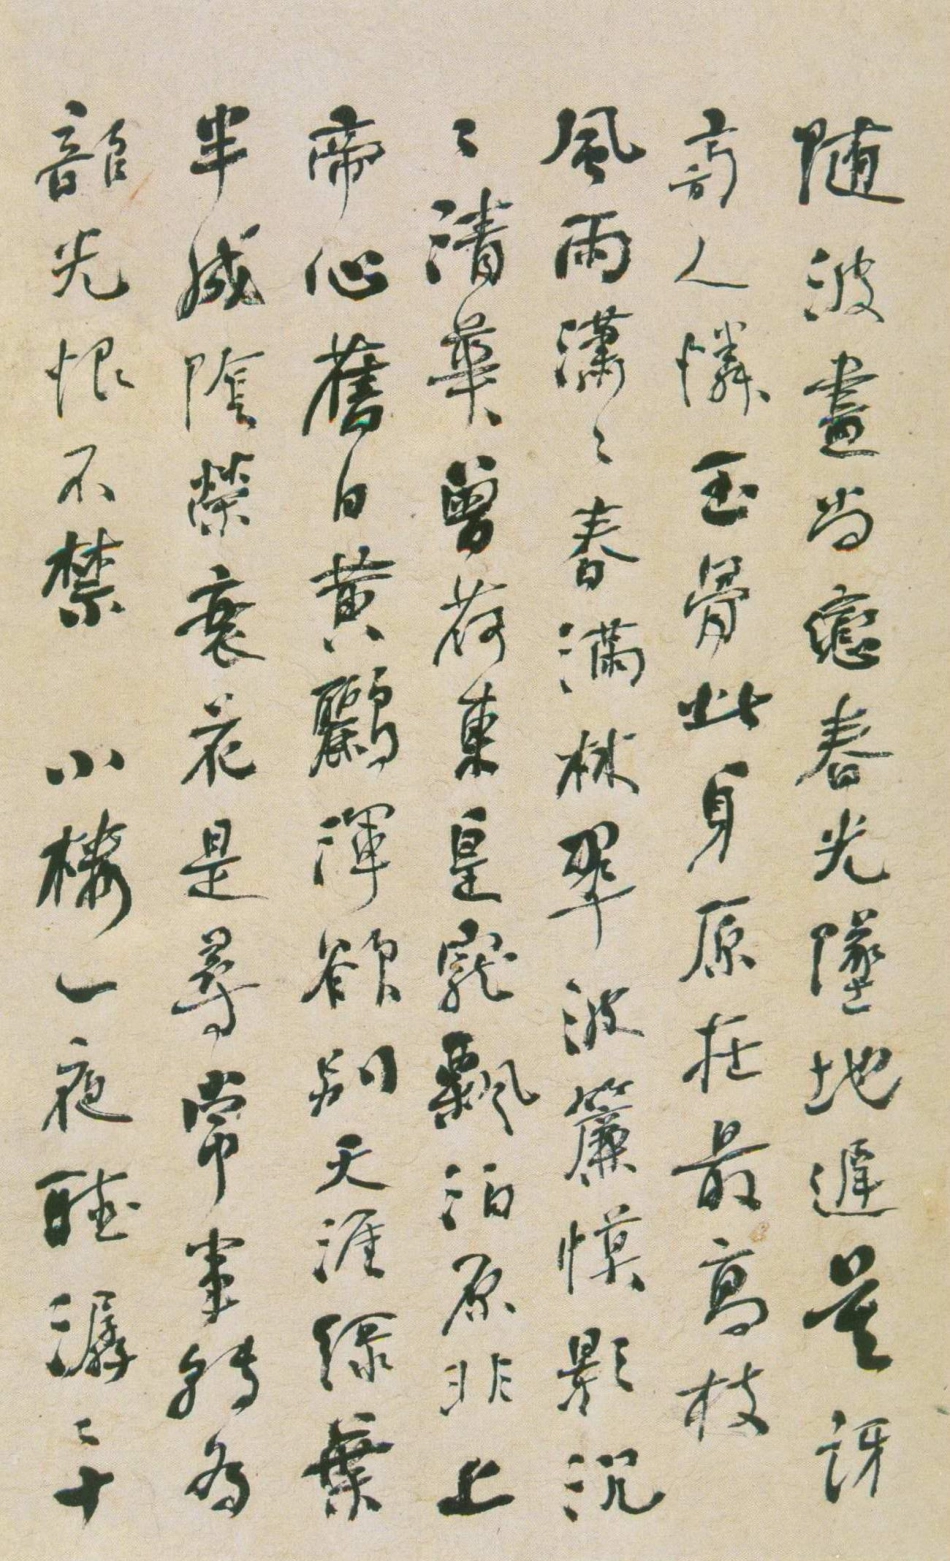 随波盡尚戀春光墜地遲莫訝
旁人憐玉骨此身原在最高枝
風雨瀟〻春滿林翠波簾幙影沉
〻清華曾荷東皇寵飄泊原非上
帝心舊日黃鸝渾欲別天涯綠葉
半成陰榮衰花是尋常事轉為
韶光恨不禁 小樓一夜聽潺〻十